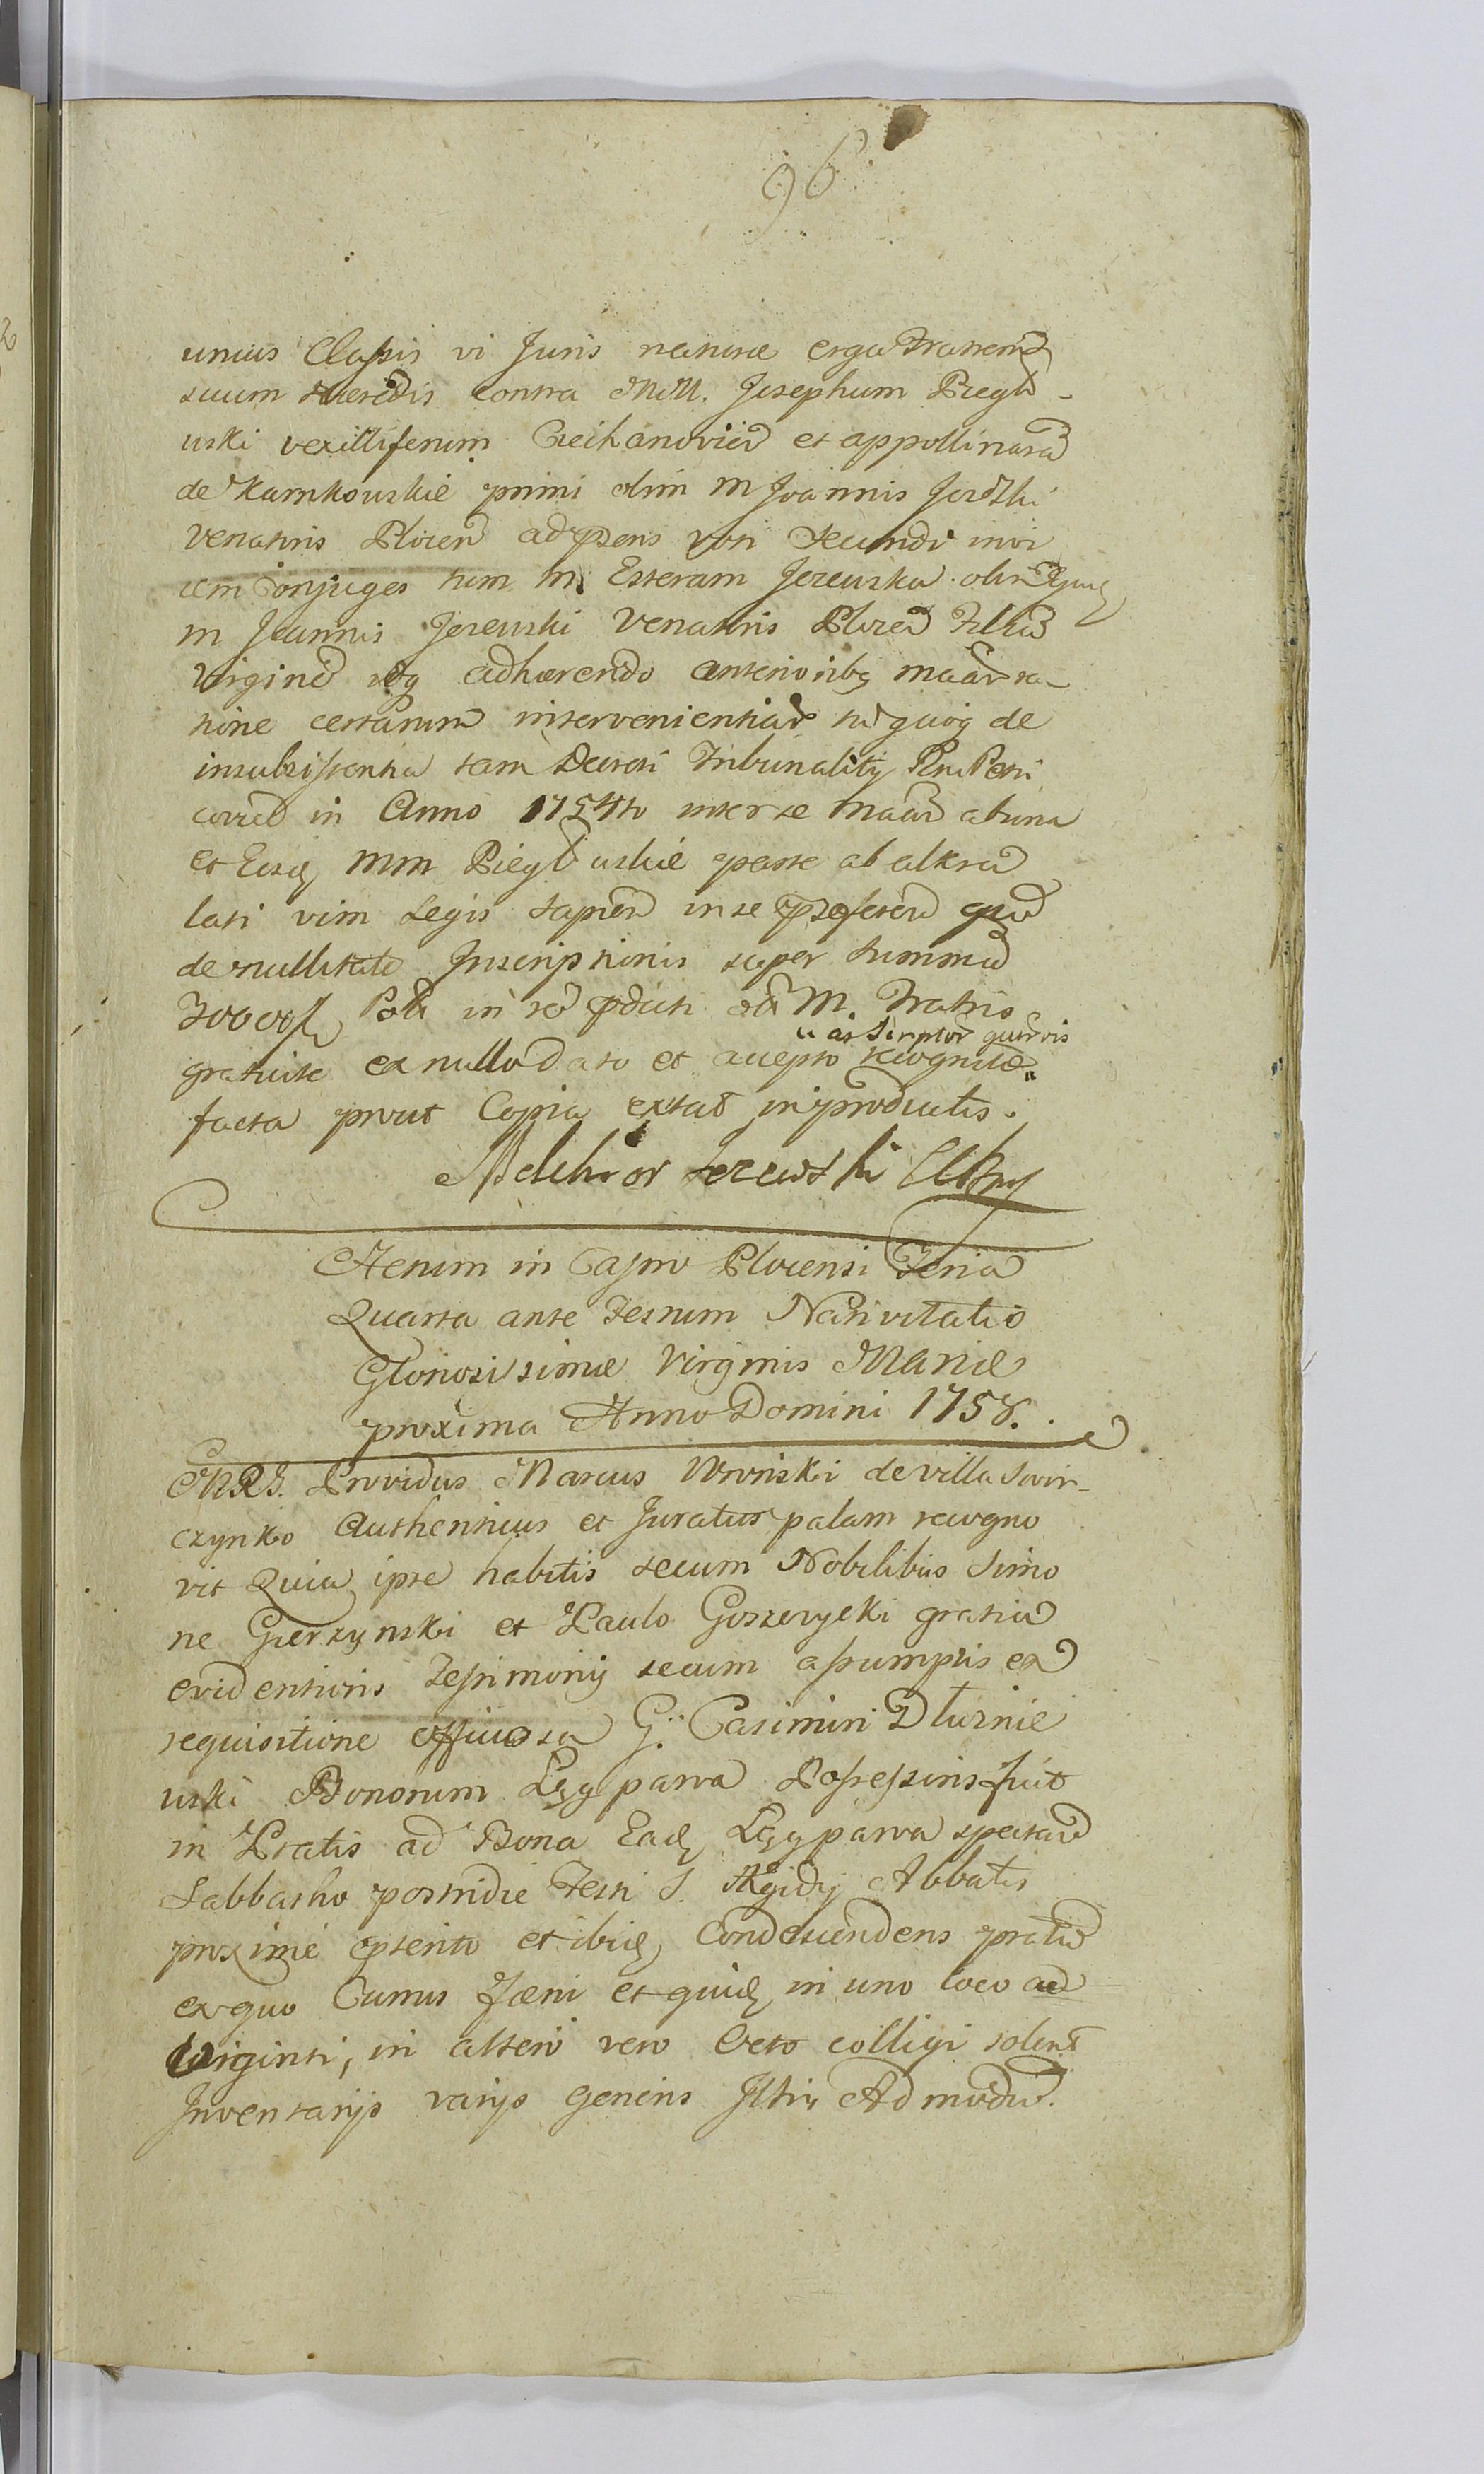 96
unius Classis vi Juris naturæ erga Fratrem
suum Hæredis contra MM. Josephum Biegł-
uski vexilliferum Ciechanovien et appollinara
de Karnkowskie primi olim M Joannis Jezewski
venatoris Plocen ad psens voti Secundi invi
cem Conjuges tum M. Esteram Jezewska olim
M Joannis Jezewski Venatoris Plocen Filia
Virgine adhærendo anterioribq
tione certarum intervenientiar de
insubsistentia tam Decreti Tribunality Rni Petri
in Anno 1754to inter se abuna
et Eosq MM Biegł uskie parte ab altera
lati vim Legis sapien in se
de nullitate Inscriptionis super summa
30000 Pol in M. Fratris
" as
gratuite ex nullo dato et accepto recognite "
facta prout Copia extat in productis.
Melchior Jezewski
Actum in Castro Plocensi Feria
Quarta ante Festum Nativitatis
Gloriosissimæ Virginis Mariæ
proxima Anno Domini 1758.
Providus Marcus Wronski de villa Swir-
czynko Authenticus et Juratus palam recogno
vit Quia ipse habitis secum Nobilibus Simo
ne Gierzynski et Paulo Goszczycki gratia
evidentioris Testimonij secum assumptis ex
requisitione officiosa G. Casimiri Dłuznie
wski Bonorum Lęg parva Possessoris fuit
in Pratis ad Bona Eadq Lęg parva spectan
Sabbatho postridie Festi S. Ægidij Abbatis
proxime pterito et ibiq Condescendens pratu
ex quo Currus Fæni et quidq in uno loco ad
Viginti, in altero vero Octo colligi solent
Inventarijs varijs generis Iltris Admodu.